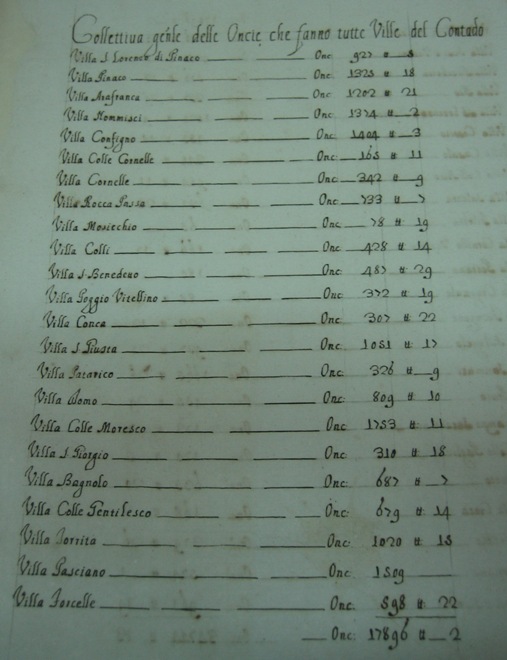 Collettiua gn̄le delle Oncie che fanno tutte Ville del Contado
Villa S Lorenzo di Pinaco Onc 927 # 5
Villa Pinaco Onc 1325 # 18
Villa Arafranca Onc 1202 # 21
Villa Nommisci Onc 1374 # 2
Villa Configno Onc 1404 # 3
Villa Colle Cornelle Onc 165 # 11
Villa Cornelle Onc 342 # 9
Villa Rocca Passa Onc 733 # 7
Villa Mosicchio Onc 78 # 19
Villa Colli Onc 428 # 14
Villa S Benedetto Onc 487 # 29
Villa Poggio Vitellino Onc 372 # 19
Villa Conca Onc 307 # 22
Villa S Giusta Onc 1051 # 17
Villa Patarico Onc 326 # 9
Villa Domo Onc 809 # 10
Villa Colle Moresco Onc 1753 # 11
Villa S Giorgio Onc 310 # 18
Villa Bagnolo Onc 687 # 7
Villa Colle Gentilesco Onc: 679 # 14
Villa Torrita Onc: 1020 # 15
Villa Pasciano Onc 1509
Villa Forcelle Onc: 598 # 22
Onc: 17896 # 2